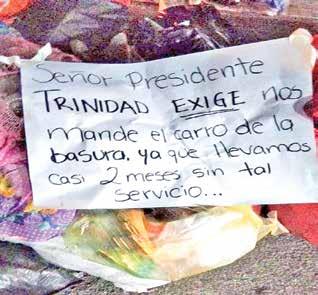 Señor Presidente
TRINIDAD EXIGE nos
mande el carro de la
basura, ya que llevamos
casi 2 meses sin tal
servicio...